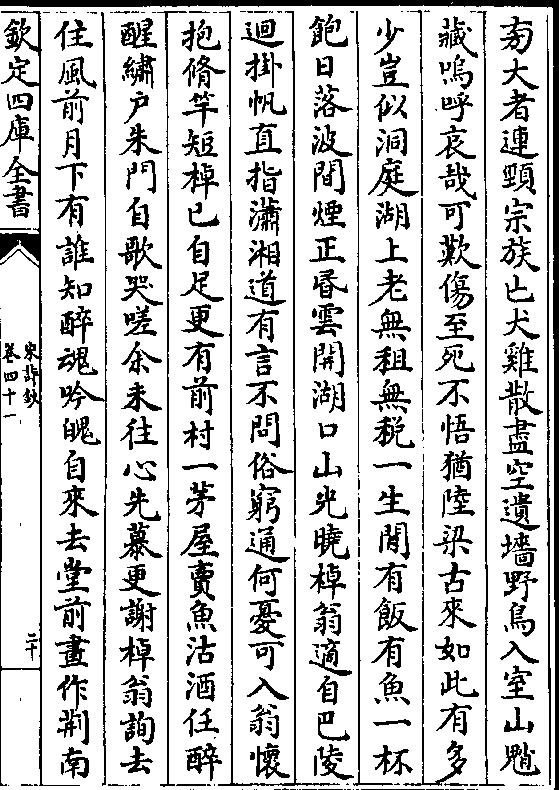 匊大者連頸宗族亡犬雞散盡空遺墻野鳥入室山魈
藏嗚呼哀哉可歎傷至死不悟猶陸梁古來如此有多
少豈似洞庭湖上老無租無税一生閒有飯有魚一杯
飽日落波間煙正昏雲開湖口山光曉棹翁適自巴陵
迴掛帆直指瀟湘道有言不問俗窮通何憂可入翁懷
抱脩竿短棹已自足更有前村一茅屋賣魚沽酒任醉
醒繡户朱門自歌哭嗟余未往心先慕更謝棹翁詢去
住風前月下有誰知醉魂吟魄自來去堂前畫作荆南
欽定四庫全書
宋詩鈔
卷四十一
二十